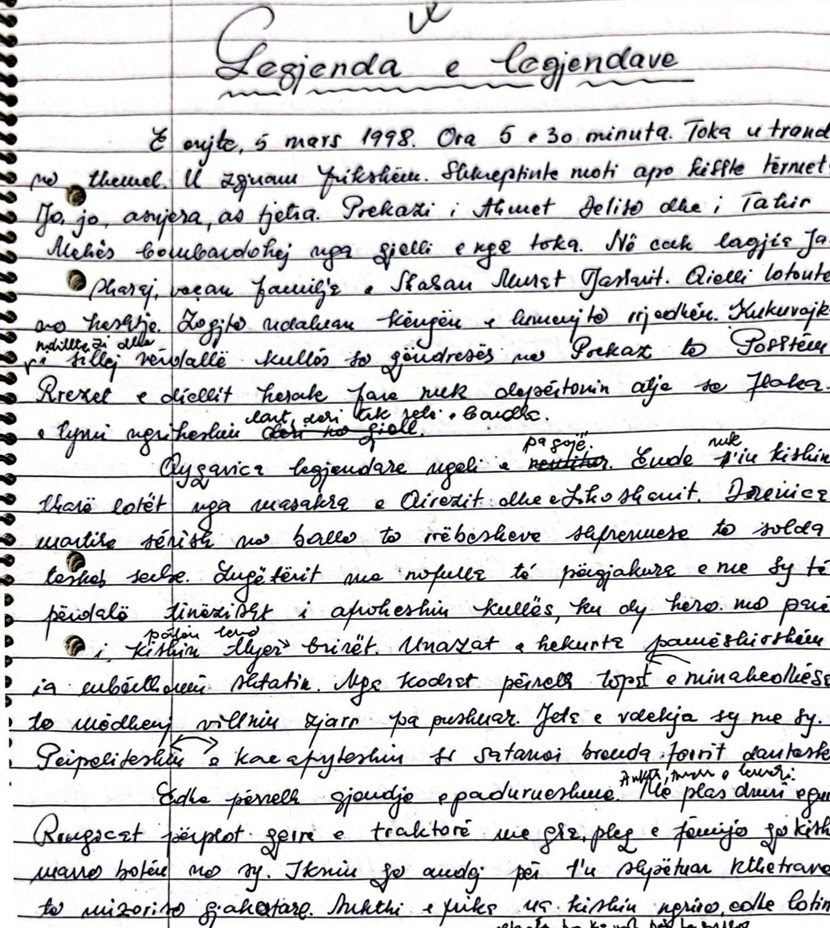 Legjenda e legjendave
E enjte, 5 mars 1998. Ora 5 e 30 minuta. Toka u trand
në themel. U zgjuam frikshëm. Shkreptinte moti apo kishte tërmet
Jo, jo, asnjera, as tjetra. Prekazi i Ahmet Delisë dhe i Tahir
Mehës bombardohej nga qielli e nga toka. Në cak lagjia Ja
sharaj, veçan familja e Shaban Murat Jasharit. Qielli lotonte
në heshtje. Zogjtë ndaluan këngën e lumenjtë rrjedhën. Kukuvajk
ndillte zi dhe
sillej vërdallë kullës së qëndresës në Prekaz të Poshtëm
Rrezet e diellit herak fare nuk depërtonin atje se flaka
lart, deri tek retë e bardha.
e tymi ngriheshin deri në qiell.
pa gojë. nuk
Qyqavica legjendare ngeli e . Ende s'iu kishin
tharë lotët nga masakra e Qirezit dhe e Likoshanit. Drenica
martire sërish në ballë të rrëbesheve shfrenuese të solda
teskës serbe. Lugëtërit me nofulla të përgjakura e me sy të
përdalë tinëzisht i afroheshin kullës, ku dy herë më parë
pësuan
i kishin thyer brirët. Unazat e hekurta pamëshirshëm
ia mbërthenin shtatin. Nga kodrat përreth topat e minahedhëse
të mëdhenj villnin zjarr pa pushuar. Jeta e vdekja sy me sy.
Përpëliteshin e kacafyteshin si satanai brenda ferrit dantesk
Edhe përreth gjendje e padurueshme. Më plas dreri e gur
Rrugicat përplot qerre e traktorë me gra, pleq e fëmijë që kish
marrë botën në sy. Iknin që andej për t'u shpëtuar kthetrave
të mizorisë gjakatare. Ankthi e frika ua kishin ngrirë edhe lotin